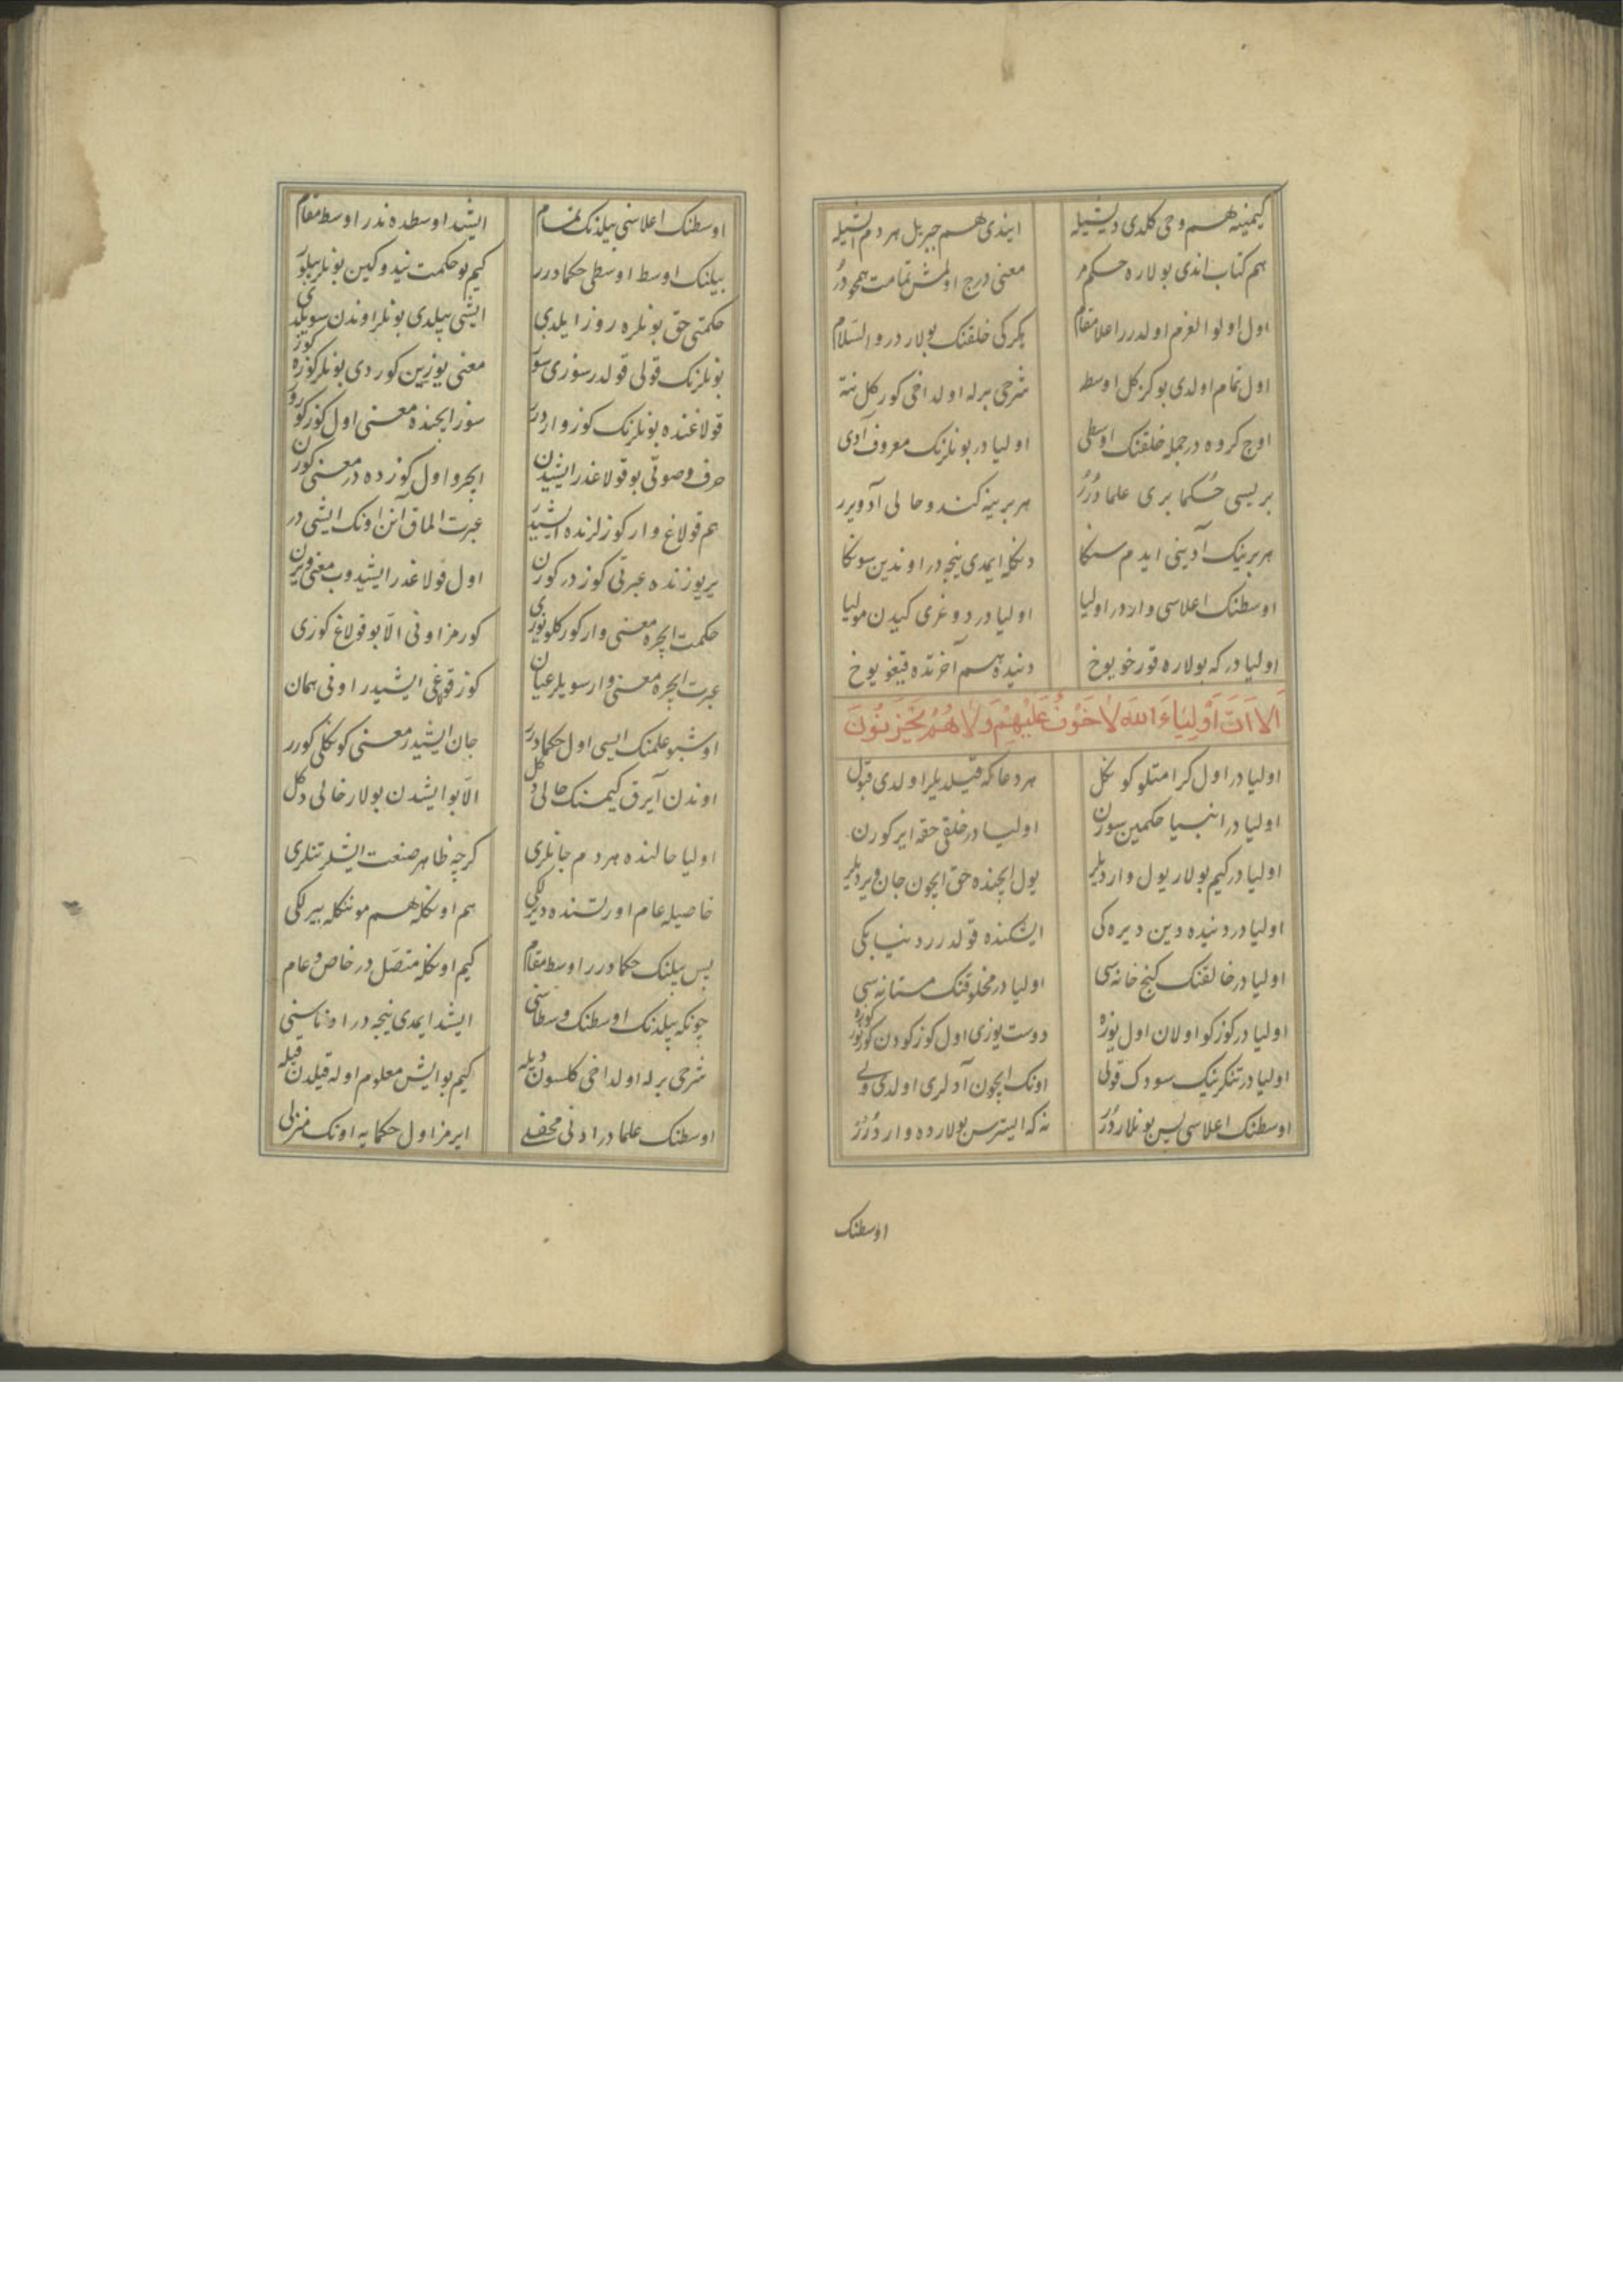 كیمینه هم وحی كلدی دیشیله ایندی هم جبریل هر دم ایشیله
هم كتاب اندی بولاره حكم مر معنی درج اولمش تمامت همچو در
اول اولوا العزم اولدرر اعلا مقام یكركی خلقنك بولار در والسلام
اول تمام اولدی بو كز كل اوسط شرحی برله اولداخی كور كل نته
اوچ كروه در جمله خلقنك اوسطی اولیا در بونلرنك معروف آدی
بریسی حكما بری علما درر هر برینه كندو حالی آد ویرر
هر برینك آدینی ایدم سنكا دنكله ایمدی نیجه در اوندین سونكا
اوسطنك اعلاسی واردر اولیا اولیا در دوغری كیدن مولیا
اولیا در كه بولاره قورخو یوخ دنیده هم آخرتده قیغو یوخ
اَلا اِنَّ اَوْلِیٰاءَ اللّٰهِ لاٰ خَوْفٌ عَلَیْهِمْ وَلاٰ هُمْ یَحْزَنُونَ
اولیا در اول كرامتلو كونكل هر دعا كه قیلدیلر اولدی قبول
اولیا در انبیا حكمین سورن اولیا در خلقی حقه ایركورن
اولیا در كیم بولار یول واردیلر یول ایچنده حق ایچون جان ویردیلر
اولیا در دنیده دین دیره كی ایشكنده قولدرر دنیا بكی
اولیا در خالقنك كنج خانه سی اولیا در مخلوقنك مستانه سی
اولیا در كوزكو اولان اول یوزه دوست یوزی اول كوزكودن كورنور كوزه
اولیا در تنكرینك سودك قولی اونك ایچون آدلری اولدی ولی
اوسطنك اعلاسی پس بونلار درر نه كه ایسترسن بولارده وار درر
اوسطنك
اوسطنك اعلاسنی بیلدنك تمام ایشید اوسطده ندر اوسط مقام
بیلنك اوسط اوسطی حكما درر كیم بو حكمت نیدوكین بونلر بیلور
حكمتی حق بونلره روز ایلدی ایشی بیلدی بونلر اوندن سویلدی
بونلرنك قولی قولدر سوزی سوز معنی یوزین كوردی بونلر كوزه كوز
قولاغنده بونلرنك كوز وار درر سوز ایچنده معنی اول كوز كورر
حرف و صوتی بو قولاغدر ایشیدن ایچرو اول كوزده در معنی كورن
هم قولاغ وار كوزلرنده ایشیدر عبرت الماق آنن اونك ایشی در
یر یوزنده عبرتی كوزدر كورن اول قولاغدر ایشیدوب معنی ویرن
حكمت ایچره معنی وار كور كلو یوزی كورمز اونی الا بو قولاغ كوزی
عبرت ایچره معنی وار سویلر عیان كوز قولاغی ایشیدر اونی همان
اوشبو علمنك ایسی اول حكما درر جان ایشیدر معنی كونكلی كورر
اوندن آیرق كیمسنك حالی دكل الا بو ایشدن بولار خالی دكل
اولیا حالنده هر دم جانلری كرچه ظاهر صنعت ایشلر تنلری
خاصیله عام اورتسنده دیرلكی هم اونكله هم موننكله بیرلكی
پس بیلنك حكما درر اوسط مقام كیم اونكله متصل در خاص و عام
چونكه بیلدنك اوسطنك وسطاسنی ایشد ایمدی نیجه در اوناسنی
شرحی برله اولداخی كلسون دیله كیم بو ایش معلوم اوله قیلدن قیله
اوسطنك علما در ادنی محفلی ایرمز اول حكمایه اونك منزلی